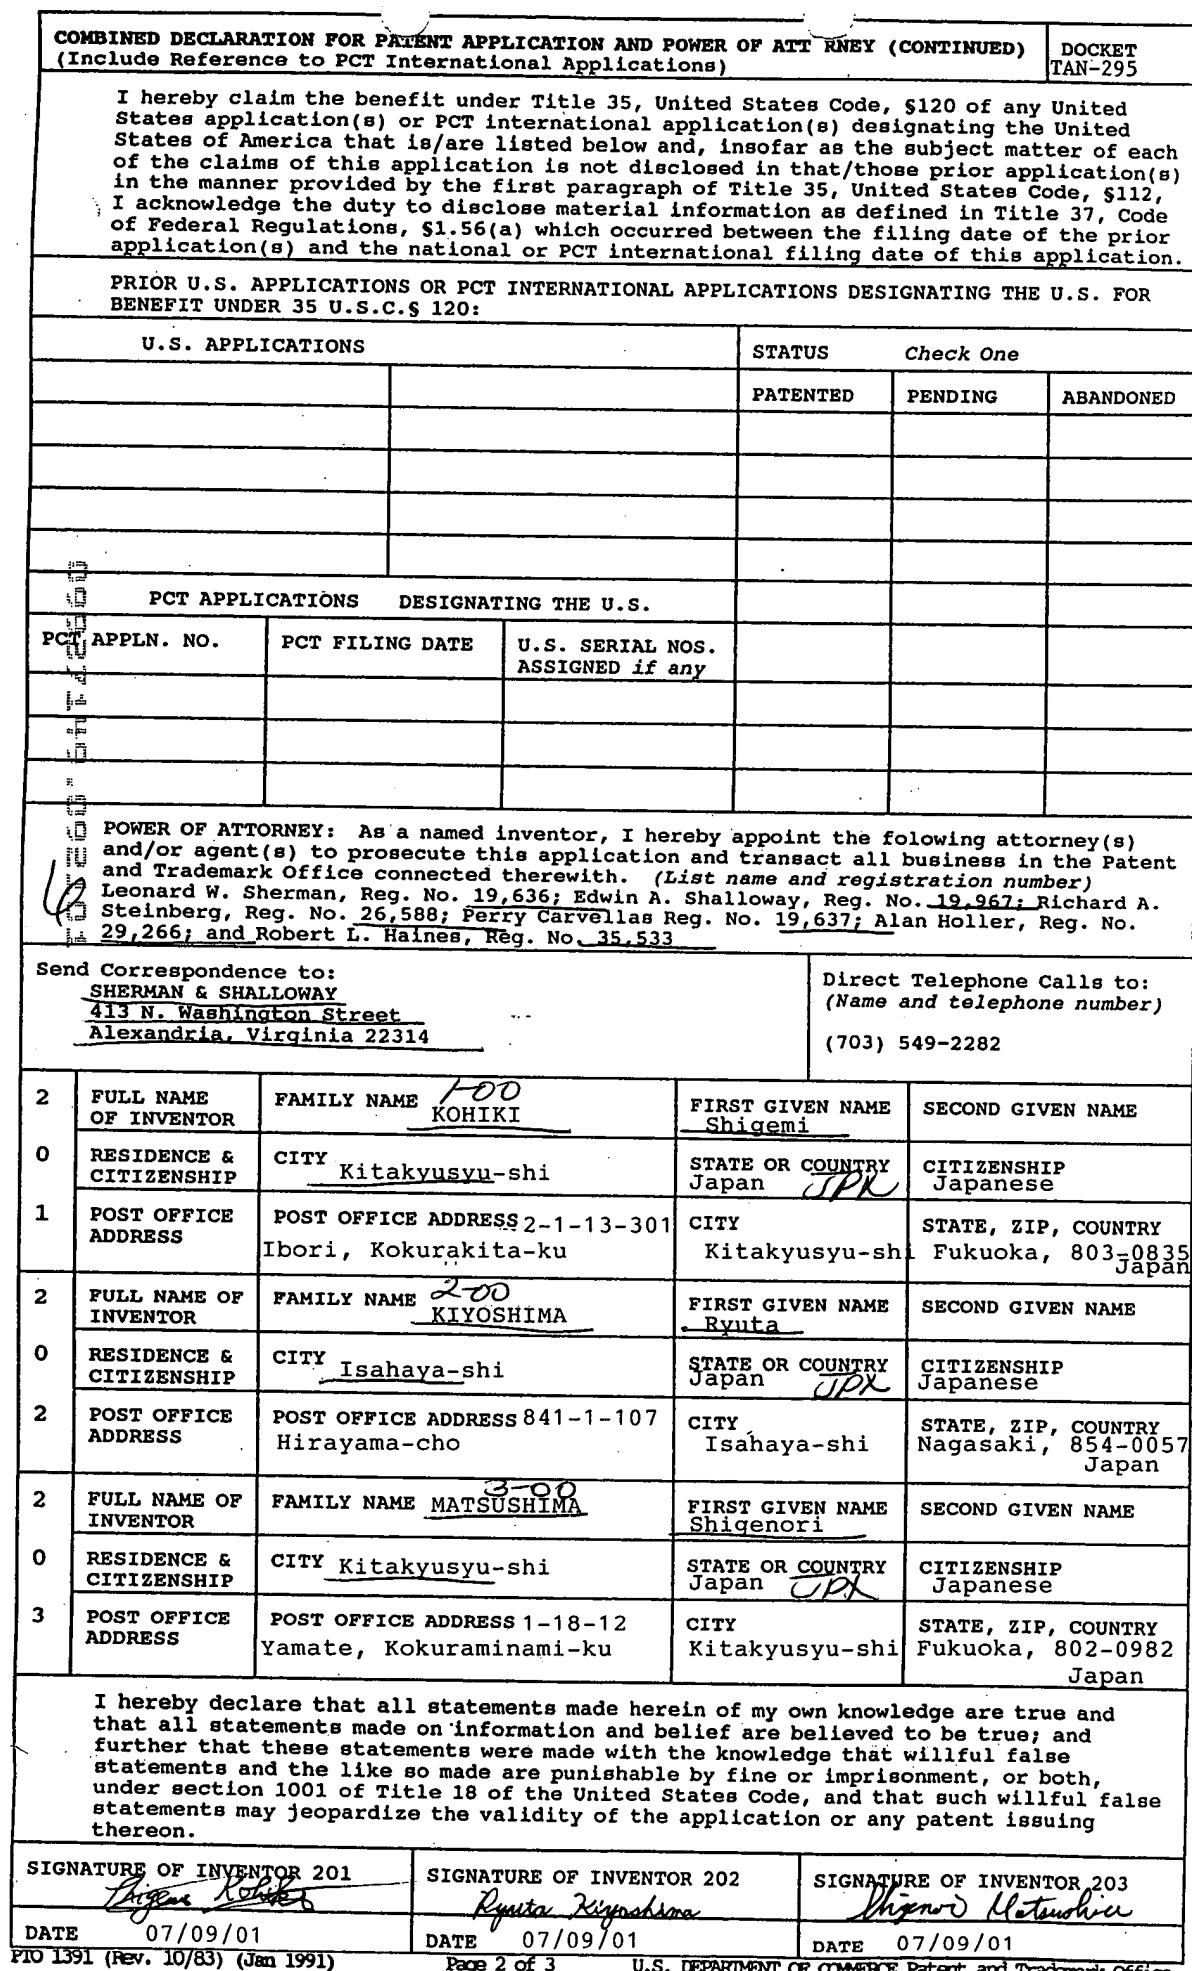 COMBINED DECLARATION FOR PATENT APPLICATION AND POWER OF ATT RNEY (CONTINUED)
(Include Reference to PCT International Applications)
DOCKET
TAN-295
I hereby claim the benefit under Title 35, United States Code, §120 of any United
States application(s) or PCT international application(s) designating the United
States of America that is/are listed below and, insofar as the subject matter of each
of the claims of this application is not disclosed in that/those prior application(s)
in the manner provided by the first paragraph of Title 35, United States Code, §112,
I acknowledge the duty to disclose material information as defined in Title 37, Code
of Federal Regulations, §1.56(a) which occurred between the filing date of the prior
application(s) and the national or PCT international filing date of this application.
PRIOR U.S. APPLICATIONS OR PCT INTERNATIONAL APPLICATIONS DESIGNATING THE U.S. FOR
BENEFIT UNDER 35 U.S.C.§ 120:
U.S. APPLICATIONS
STATUS Check One
PATENTED PENDING ABANDONED
PCT APPLICATIONS DESIGNATING THE U.S.
PCT APPLN. NO. PCT FILING DATE U.S. SERIAL NOS.
ASSIGNED if any
POWER OF ATTORNEY: As a named inventor, I hereby appoint the folowing attorney(s)
and/or agent(s) to prosecute this application and transact all business in the Patent
and Trademark Office connected therewith. (List name and registration number)
Leonard W. Sherman, Reg. No. 19,636; Edwin A. Shalloway, Reg. No. 19,967; Richard A.
Steinberg, Reg. No. 26,588; Perry Carvellas Reg. No. 19,637; Alan Holler, Reg. No.
29,266; and Robert L. Haines, Reg. No. 35,533
Send Correspondence to:
SHERMAN & SHALLOWAY
413 N. Washington Street
Alexandria, Virginia 22314
Direct Telephone Calls to:
(Name and telephone number)
(703) 549-2282
2 FULL NAME OF INVENTOR FAMILY NAME 1-00 KOHIKI FIRST GIVEN NAME Shigemi SECOND GIVEN NAME
0 RESIDENCE & CITIZENSHIP CITY Kitakyusyu-shi STATE OR COUNTRY Japan JPX CITIZENSHIP Japanese
1 POST OFFICE ADDRESS POST OFFICE ADDRESS 2-1-13-301 Ibori, Kokurakita-ku CITY Kitakyusyu-shi STATE, ZIP, COUNTRY Fukuoka, 803-0835 Japan
2 FULL NAME OF INVENTOR FAMILY NAME 2-00 KIYOSHIMA FIRST GIVEN NAME Ryuta SECOND GIVEN NAME
0 RESIDENCE & CITIZENSHIP CITY Isahaya-shi STATE OR COUNTRY Japan JPX CITIZENSHIP Japanese
2 POST OFFICE ADDRESS POST OFFICE ADDRESS 841-1-107 Hirayama-cho CITY Isahaya-shi STATE, ZIP, COUNTRY Nagasaki, 854-0057 Japan
2 FULL NAME OF INVENTOR FAMILY NAME 3-00 MATSUSHIMA FIRST GIVEN NAME Shigenori SECOND GIVEN NAME
0 RESIDENCE & CITIZENSHIP CITY Kitakyusyu-shi STATE OR COUNTRY Japan JPX CITIZENSHIP Japanese
3 POST OFFICE ADDRESS POST OFFICE ADDRESS 1-18-12 Yamate, Kokuraminami-ku CITY Kitakyusyu-shi STATE, ZIP, COUNTRY Fukuoka, 802-0982 Japan
I hereby declare that all statements made herein of my own knowledge are true and
that all statements made on information and belief are believed to be true; and
further that these statements were made with the knowledge that willful false
statements and the like so made are punishable by fine or imprisonment, or both,
under section 1001 of Title 18 of the United States Code, and that such willful false
statements may jeopardize the validity of the application or any patent issuing
thereon.
SIGNATURE OF INVENTOR 201 SIGNATURE OF INVENTOR 202 SIGNATURE OF INVENTOR 203
Shigemi Kohiki Ryuta Kiyoshima Shigenori Matsushima
DATE 07/09/01 DATE 07/09/01 DATE 07/09/01
PTO 1391 (Rev. 10/83) (Jan 1991) Page 2 of 3 U.S. DEPARTMENT OF COMMERCE Patent and Trademark Office